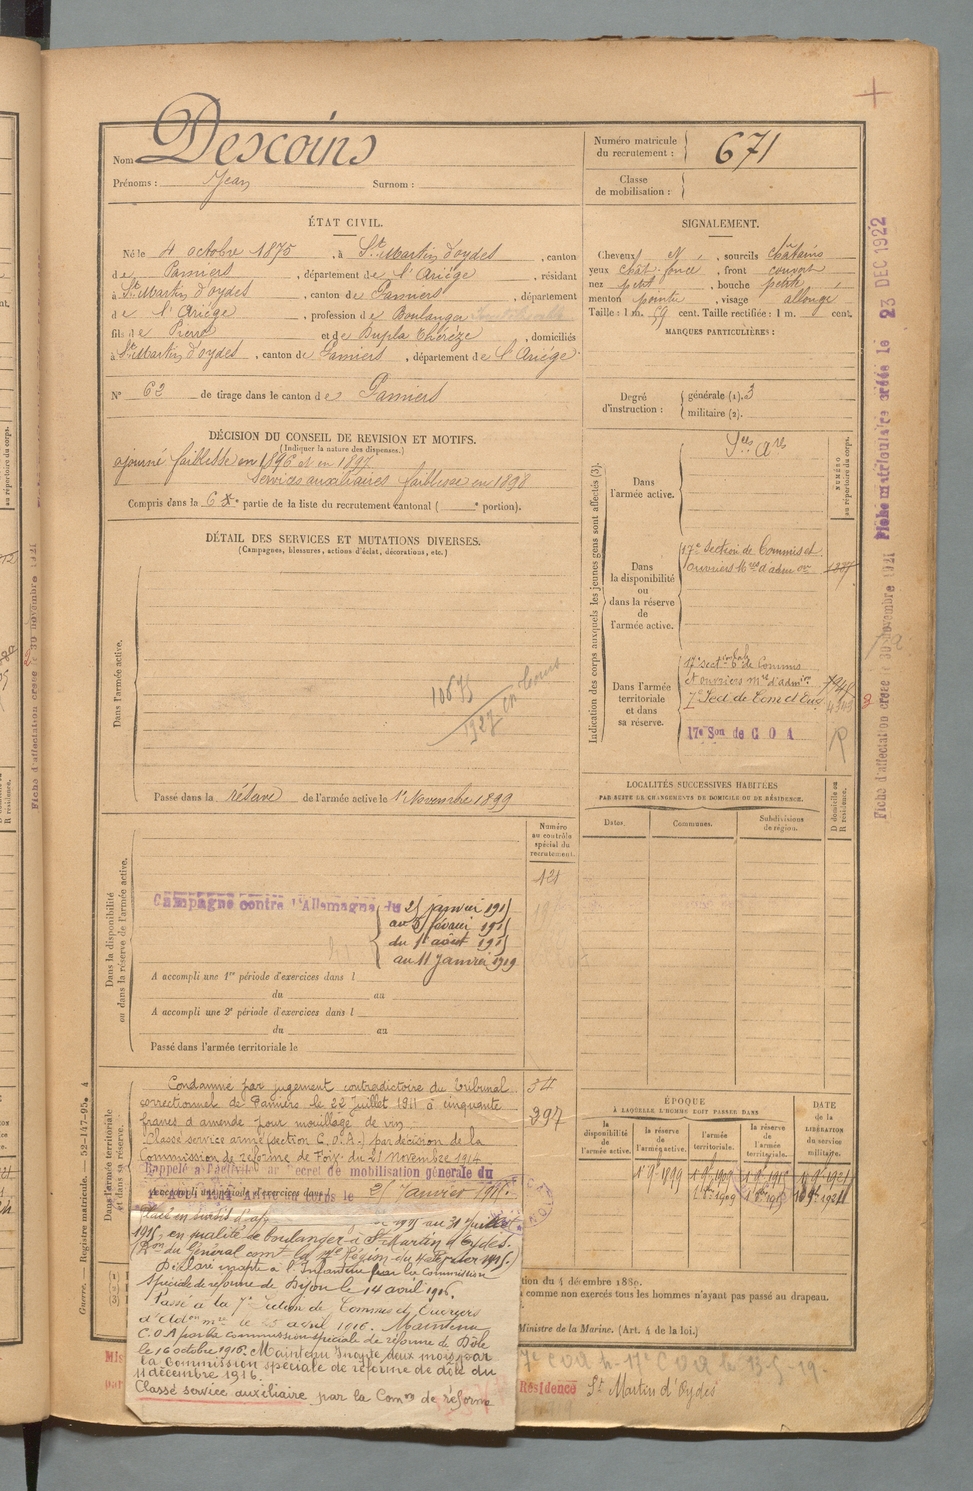 Nom Descoins
Prénoms : Jean Surnom :
Numéro matricule du recrutement : 671
Classe de mobilisation :
ÉTAT CIVIL.
Né le 4 octobre 1875, à St Martin d'oydes, canton
de Pamiers, département de l'Ariége, résidant
à St Martin d'oydes, canton de Pamiers, département
de l'Ariége, profession de Boulanger
fils de Pierre et de Dupla Thérèze, domiciliés
à St Martin d'oydes, canton de Pamiers, département de l'Ariége
N° 62 de tirage dans le canton de Pamiers
SIGNALEMENT.
Cheveux N, sourcils châtains
yeux chât. foncé, front couvert
nez petit, bouche petite
menton pointu, visage allongé
Taille : 1 m. 59 cent. Taille rectifiée : 1 m. cent.
MARQUES PARTICULIÈRES :
Degré d'instruction : générale (1). 3
militaire (2).
DÉCISION DU CONSEIL DE REVISION ET MOTIFS.
(Indiquer la nature des dispenses.)
ajourné faiblesse en 1896 et en 1897
Services auxiliaires faiblesse en 1898
Compris dans la 6e partie de la liste du recrutement cantonal ( e portion).
DÉTAIL DES SERVICES ET MUTATIONS DIVERSES.
(Campagnes, blessures, actions d'éclat, décorations, etc.)
Dans l'armée active.
10675
1927 en cours
Passé dans la réserve de l'armée active le 1er Novembre 1899
Indication des corps auxquels les jeunes gens sont affectés (3).
NUMÉRO au répertoire du corps.
Dans l'armée active.
Sces Ares
Dans la disponibilité ou dans la réserve de l'armée active.
17e Section de Commis et
ouvriers Mres d'adm on
Dans l'armée territoriale et dans sa réserve.
17e section de Commis
et ouvriers mres d'admon
7e Sect de Com et Ouv
17e Son de C O A
LOCALITÉS SUCCESSIVES HABITÉES
PAR SUITE DE CHANGEMENTS DE DOMICILE OU DE RÉSIDENCE.
Dates. Communes. Subdivisions de région. D domicile ou R résidence.
Dans la disponibilité ou dans la réserve de l'armée active.
Numéro au contrôle spécial du recrutement.
121
Campagne contre l'Allemagne du 25 janvier 1915
au 5 février 1915
du 1er août 1915
au 11 Janvier 1919
A accompli une 1re période d'exercices dans l
du au
A accompli une 2e période d'exercices dans l
du au
Passé dans l'armée territoriale le
Dans l'armée territoriale et dans sa réserve.
34
397
Condamné par jugement contradictoire du tribunal
correctionnel de Pamiers le 22 Juillet 1911 à cinquante
francs d'amende pour mouillage de vin
Classé service armé (section C.O.A.) par décision de la
Commission de réforme de Foix du 21 novembre 1914
Rappelé à l'activité par Décret de mobilisation générale du
Arrivé au corps le 25 Janvier 1915.
Placé en sursis d'ap 1915 au 31 Juillet
1915, en qualité de boulanger à St Martin d'Oydes.
(Don du Général comt la 17e Région du 4 février 1915.)
Déclaré inapte à l'Infanterie par la Commission
Spéciale de réforme de Dijon le 14 avril 1916.
Passé à la 7e Section de Commis et Ouvriers
d'Adon mre le avril 1916. Maintenu
C.O.A par la commission spéciale de réforme de Dôle
le 16 octobre 1916. Maintenu Inapte deux mois par
la Commission spéciale de réforme de dôle du
11 décembre 1916.
Classé service auxiliaire par la Comon de réforme
ÉPOQUE
À LAQUELLE L'HOMME DOIT PASSER DANS
la disponibilité de l'armée active. la réserve de l'armée active. l'armée territoriale. la réserve de l'armée territoriale.
DATE de la LIBÉRATION du service militaire.
tion du 4 décembre 1889.
comme non exercés tous les hommes n'ayant pas passé au drapeau.
Ministre de la Marine. (Art. 4 de la loi.)
Résidence St Martin d'Oydes
Guerre. — Registre matricule. — 52-147-95.
Fiche matriculaire créée le 23 DEC 1922
Fiche d'affectation créée le 30 novembre 1921